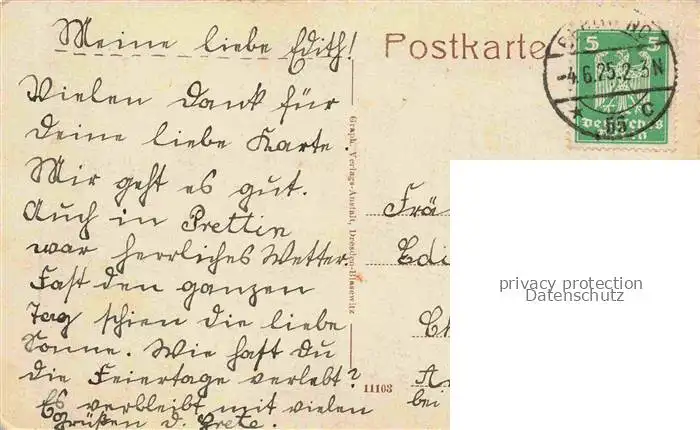 Meine liebe Edith!
Postkarte
Vielen Dank für
deine liebe Karte.
Mir geht es gut.
Auch in Prettin
war herrliches Wetter.
Fast den ganzen
Tag schien die liebe
Sonne. Wie hast du
die Feiertage verlebt?
Es verbleibt mit vielen
Grüßen d. Grete.
Graph. Verlags-Anstalt, Dresden-Blasewitz
11103
5 5
Deutsches
-4.6.25.2-3N
55 c
Frä
Edi
Ch
A
bei
privacy protection
Datenschutz